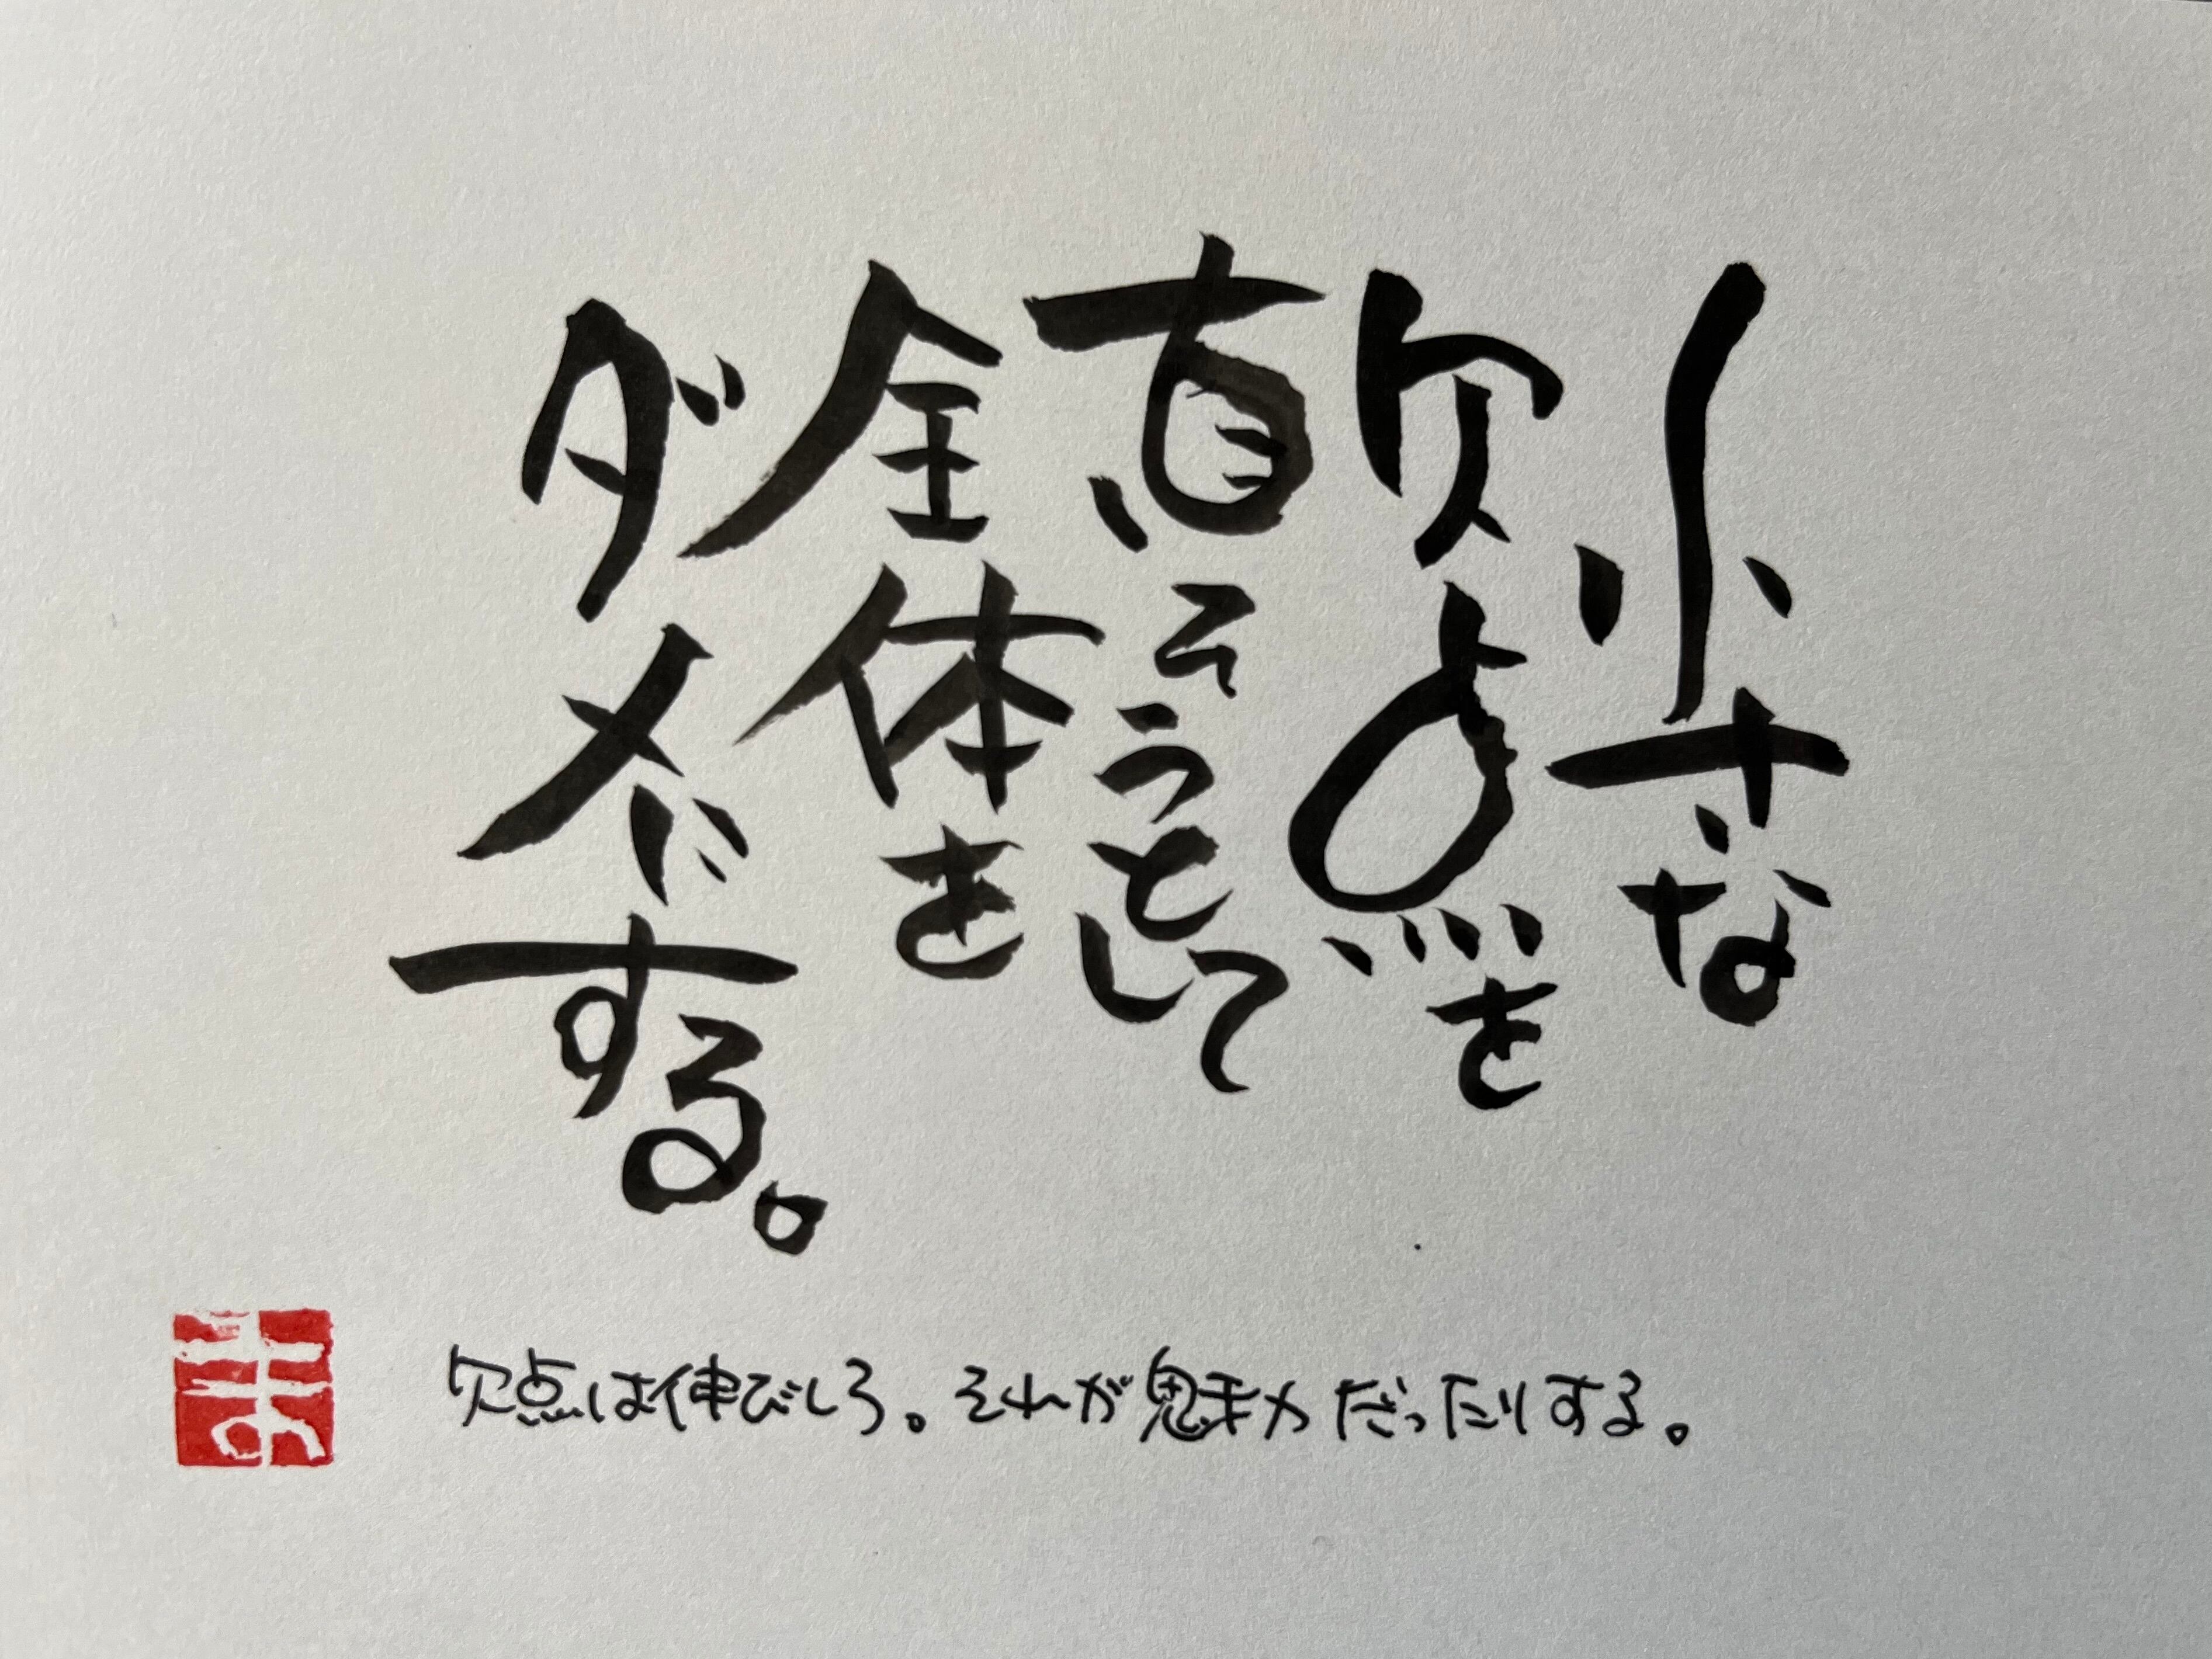 小さな
欠点を
直そうとして
全体を
ダメにする。
欠点は伸びしろ。それが魅力だったりする。